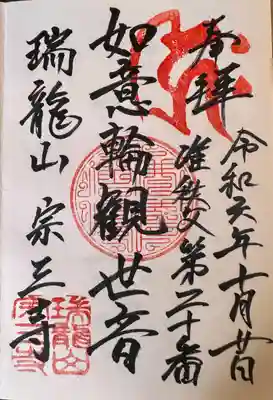 奉拝
令和六年十月廿日
准秩父第二十番
如意輪觀世音
瑞龍山 宗三寺
瑞龍山
宗三寺